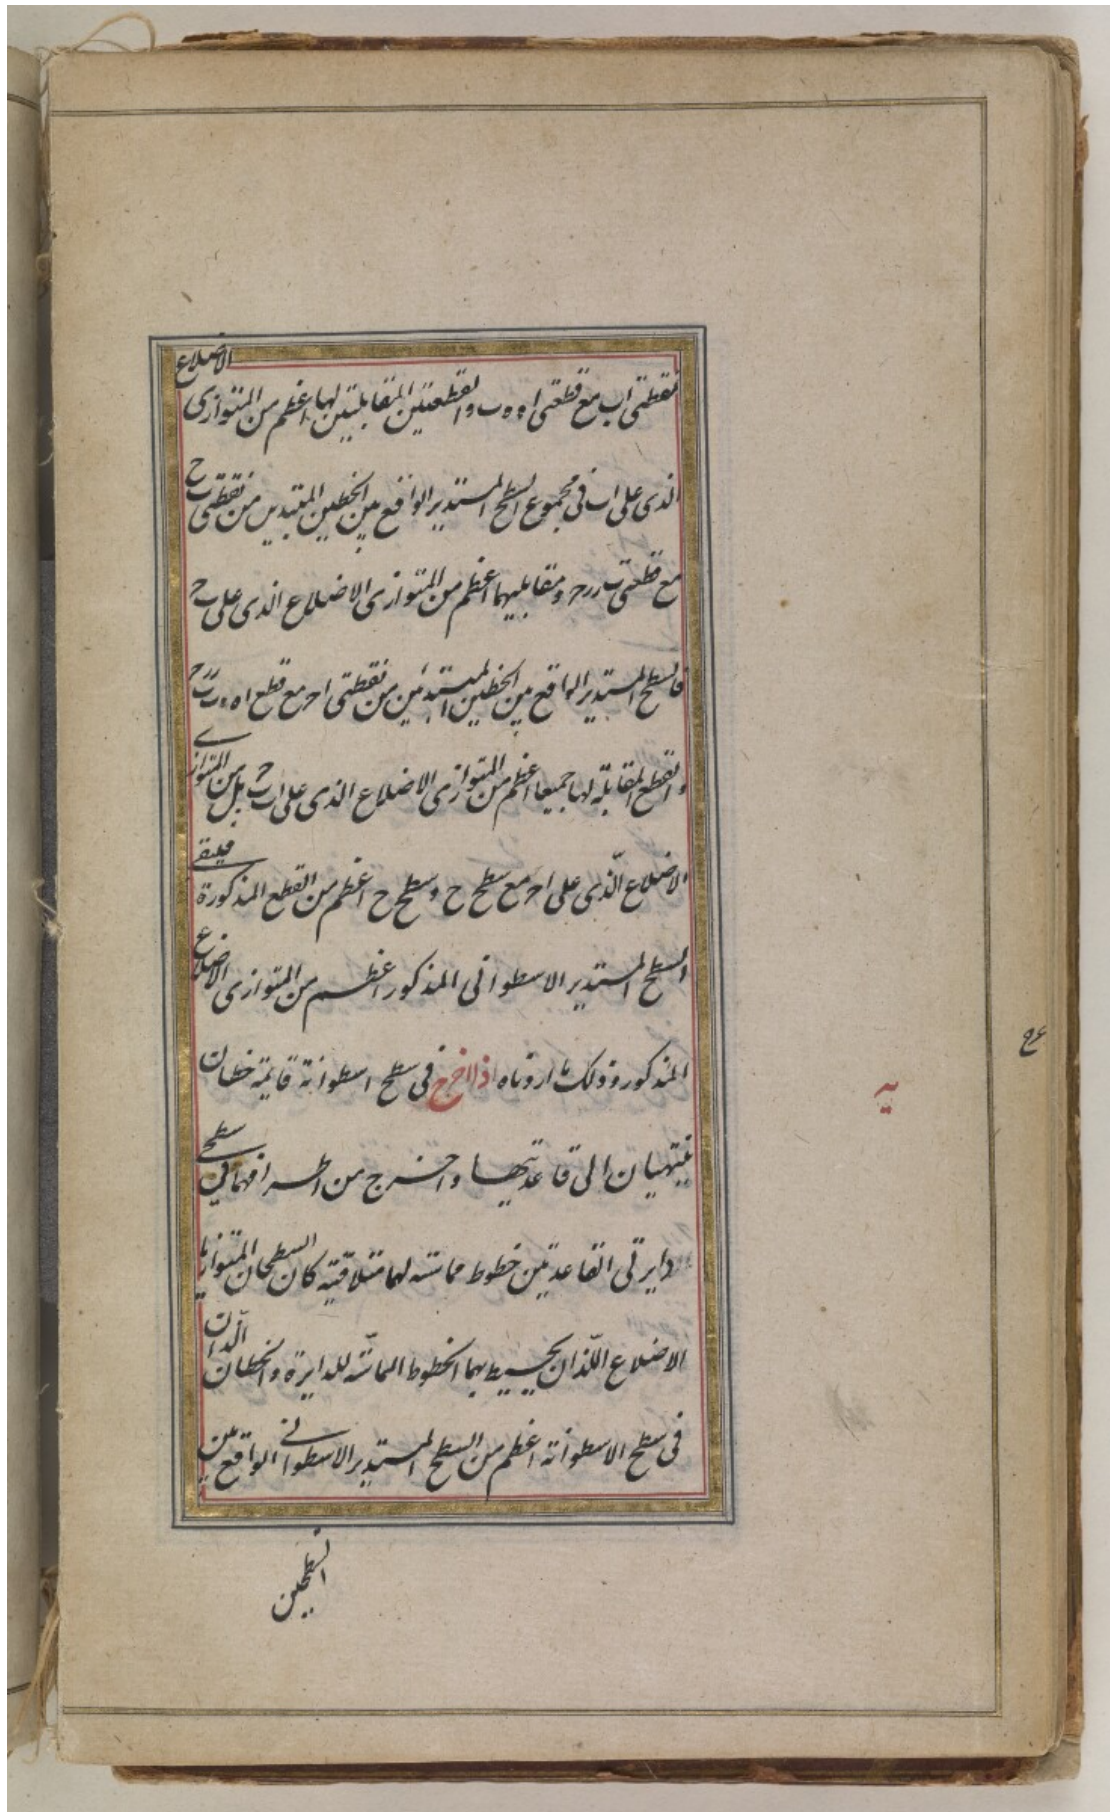 نقطتی اب مع قطعتی اه ه ب والقطعتین المتقابلتین لها اعظم من المتوازی الاضلاع
الذی علی اب فی مجموع السطح المستدیر الواقع بین الخطین المبتدیین من نقطتی ب ح
مع قطعتی ب ر ر ح ومقابلیهما اعظم من المتوازی الاضلاع الذی علی ب ح
فالسطح المستدیر الواقع بین الخطین المبتدئین من نقطتی ا ح مع قطع اه ه ب ب ر ر ح
والقطع المقابلة لها جمیعا اعظم من المتوازی الاضلاع الذی علی اب ب ح بل من المتوازی
الاضلاع الّذی علی ا ح مع سطح ح وسطح ح اعظم من القطع المذکورة فیبقی
السطح المستدیر الاسطوانی المذکور اعظم من المتوازی الاضلاع
المذکور وذلک ما اردناه اذا اخرج فی سطح اسطوانة قایمة خطان
ینتهیان الی قاعدتیها واخرج من اطرافهما فی سطحی
دایرتی القاعدتین خطوط مماسه لهما متلاقیه کان السطحان المتوازیا
الاضلاع اللّذان یحیط بهما الخطوط المماسّه للدایرة والخطان الّلدان
فی سطح الاسطوانة اعظم من السطح المستدیر الاسطوانی الواقع بین
السطحین
یه
۹۴